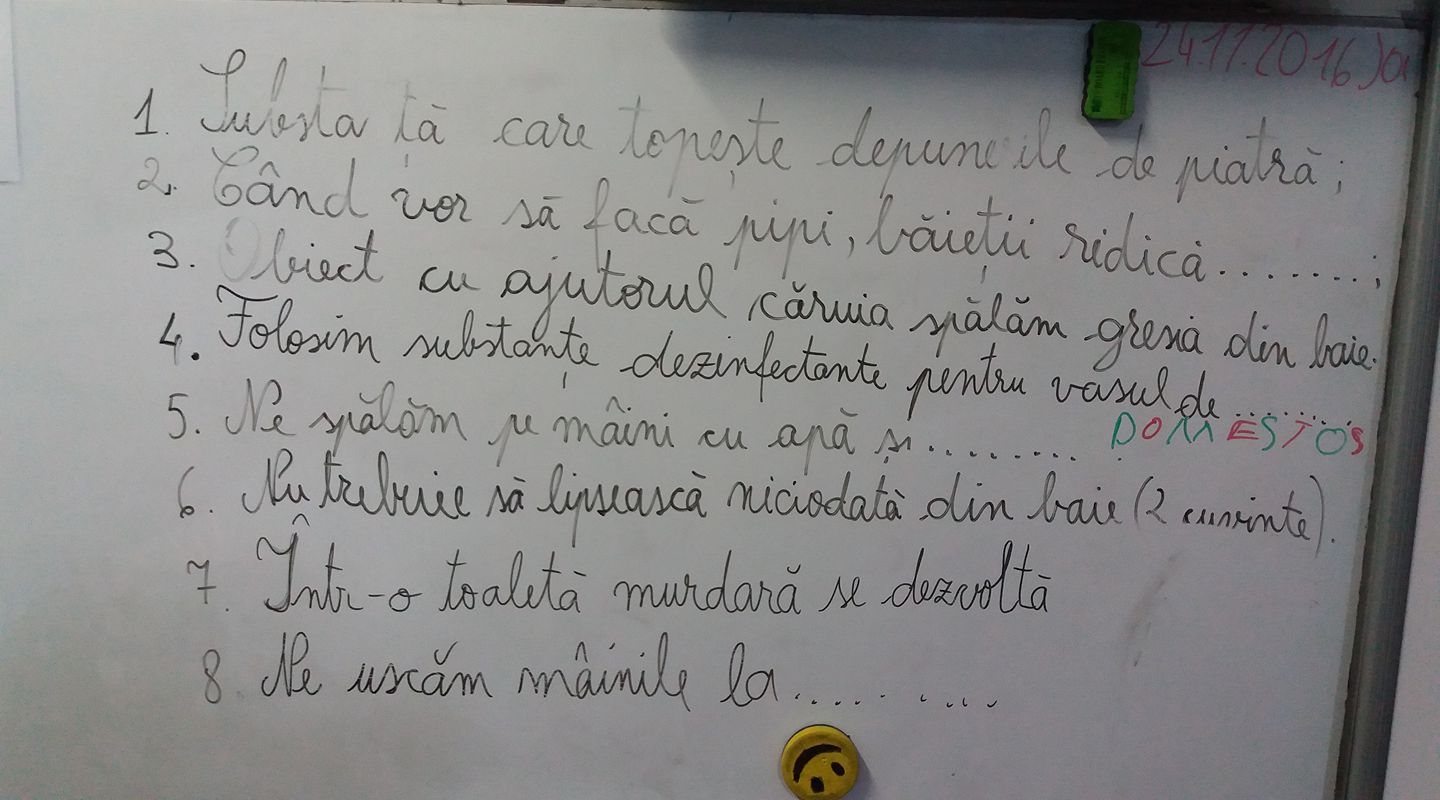 24.11.2016 Jo
1. Substa ță care topește depunerile de piatră;
2. Când vor să facă pipi, băieții ridică........;
3. Obiect cu ajutorul căruia spălăm gresia din baie.
4. Folosim substanțe dezinfectante pentru vasul de ........
5. Ne spălăm pe mâini cu apă și.........
DOMESTOS
6. Nu trebuie să lipsească niciodată din baie (2 cuvinte).
7. Într-o toaletă murdară se dezvoltă
8. Ne uscăm mâinile la.... . ...